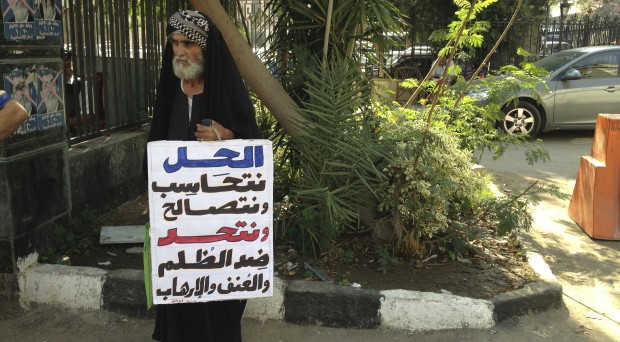 الحل
نتحاسب
ونتصالح
ونتحد
ضد الظلم
والعنف والإرهاب